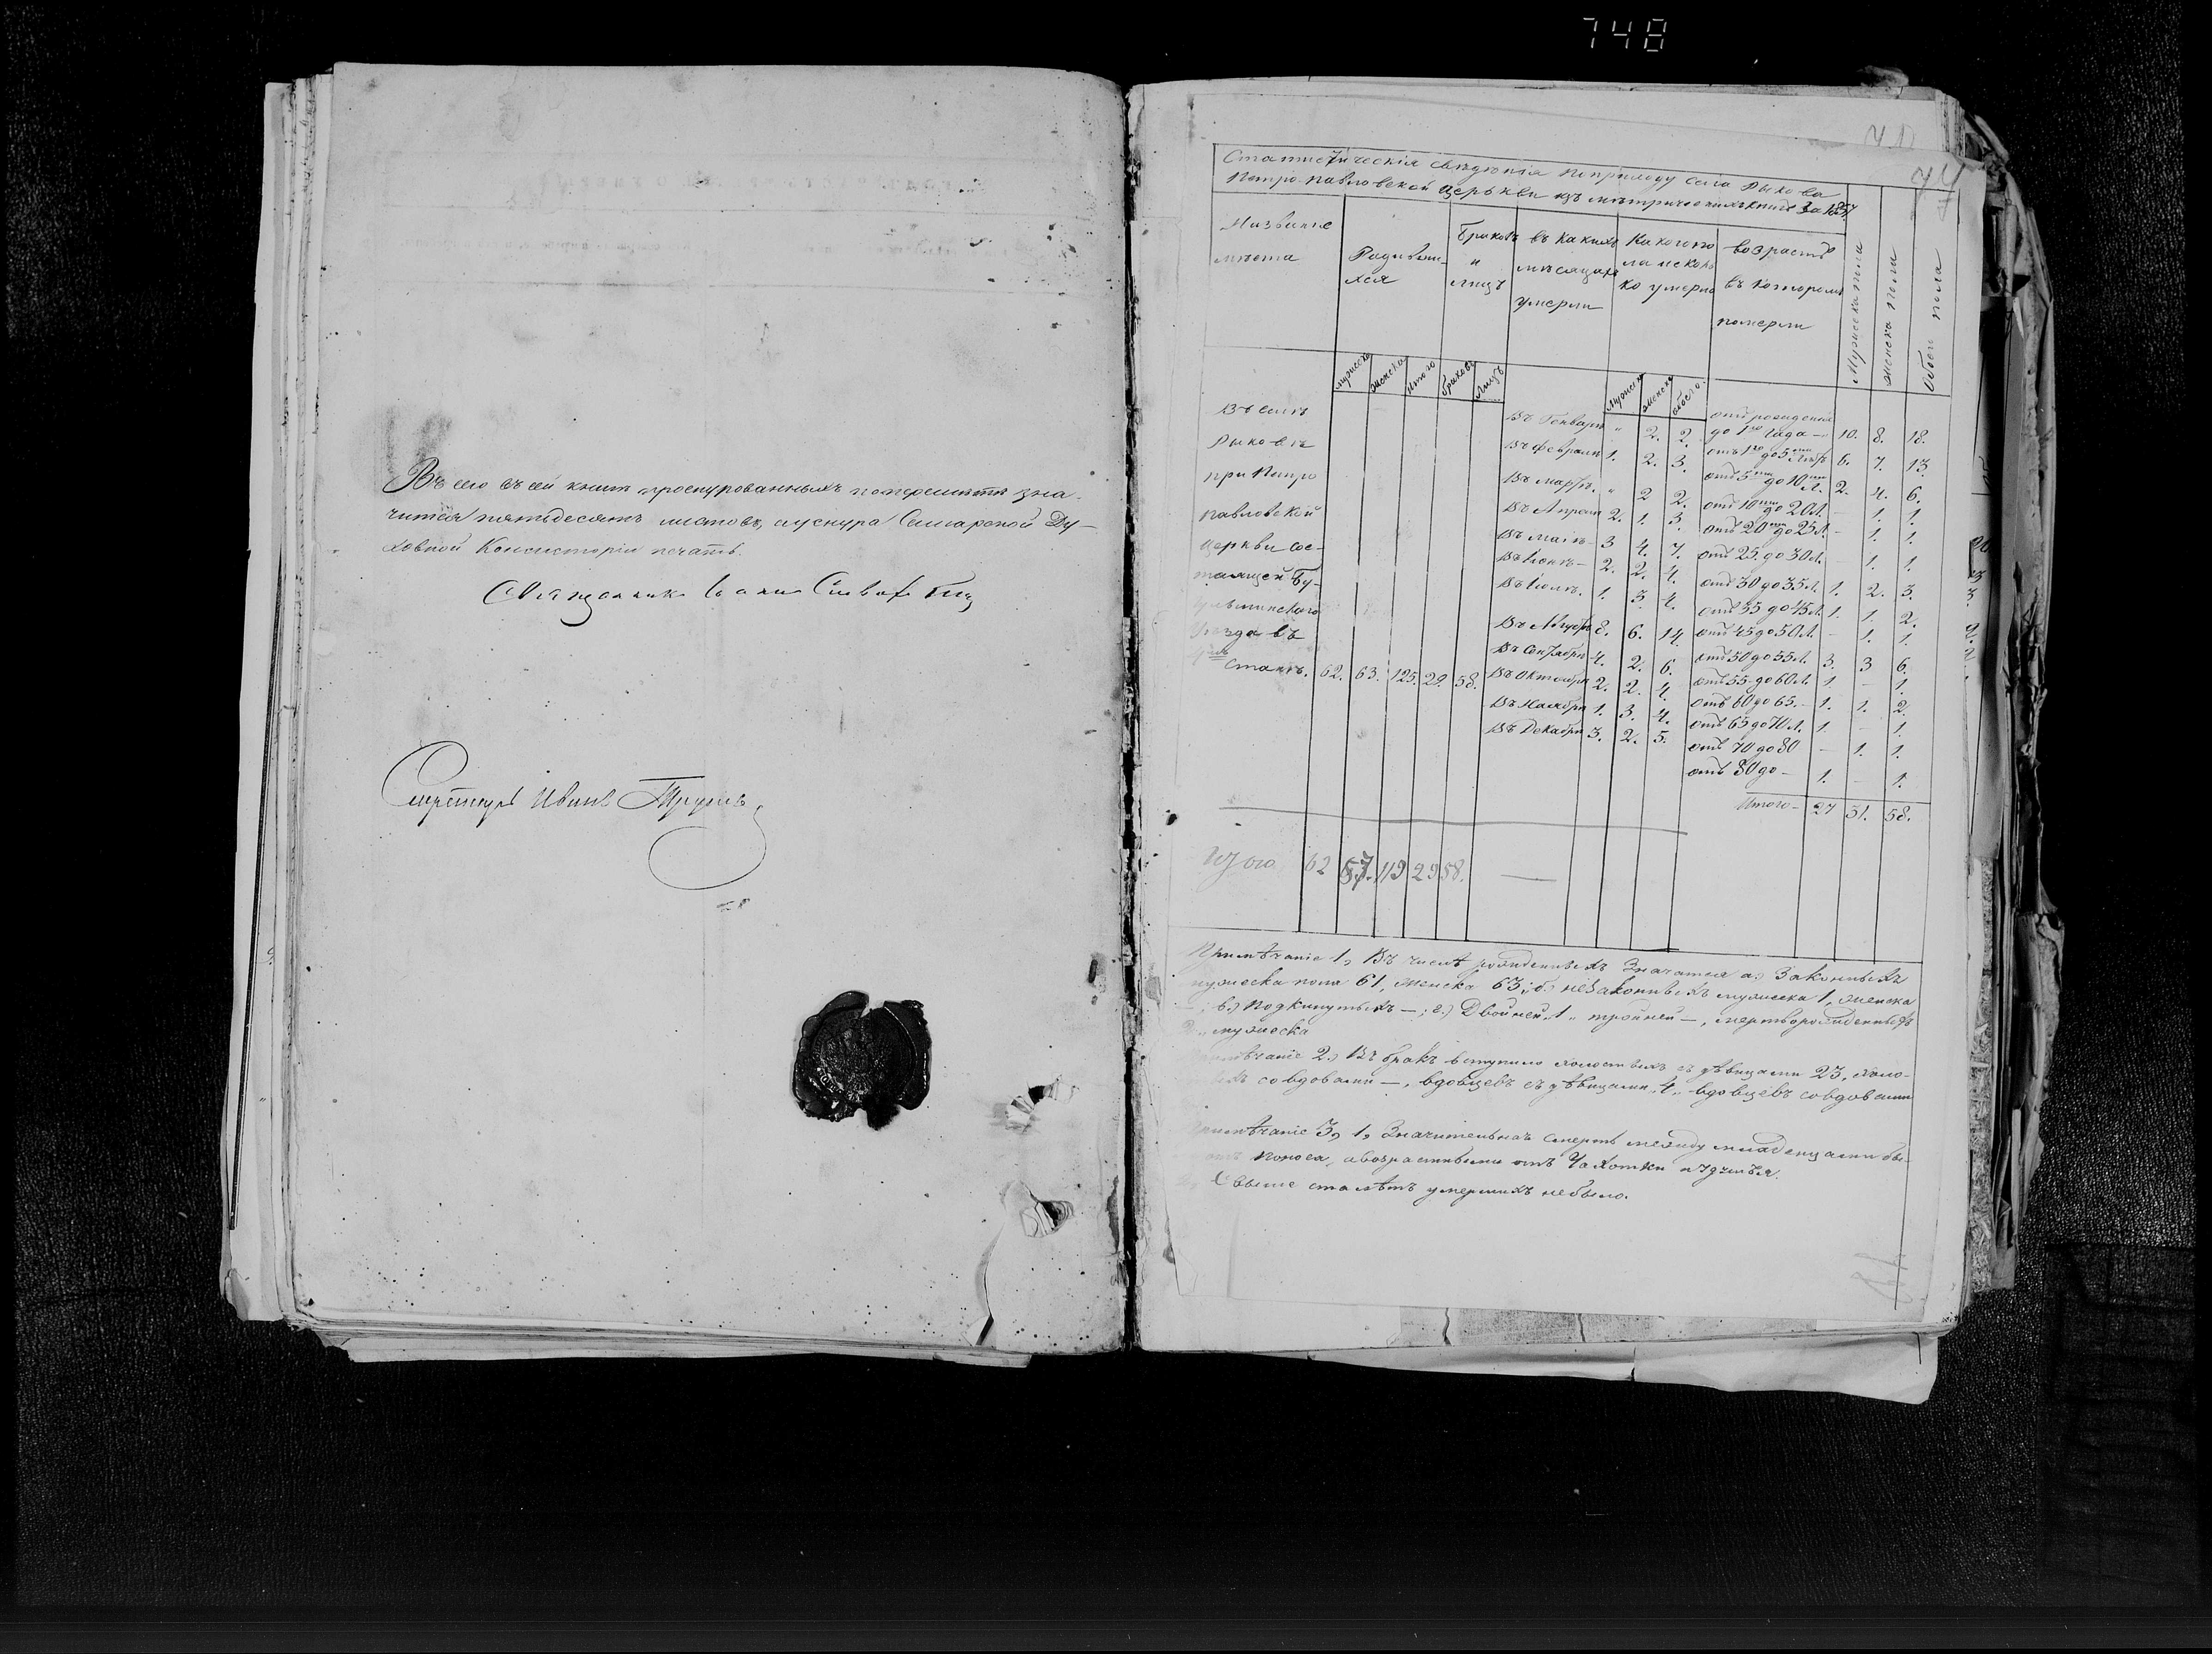 748
Въ сей книге прошнурованныхъ
читая пятьдесятъ листовъ, а шнура Самарской Ду-
ховной Консисторіи печать.
Секретарь Иванъ
74
Статистическія сведенія по приходу села Рыкова
Петро-павловской церькви изъ метрическихъ книгъ за 1857
Названіе места
Родивши-хся
Браковъ и лицъ
въ какихъ месяцахъ умерли
Какого пола и сколько умерло
возрастъ въ которомъ померли
Мужеска пола
Женска пола
Обоего пола
мужеска Женска Итого браковъ Лицъ
мужеска женска обоего
Въ селе
Рыкове
при Петро
павловской
церкви сос-
тоящей Бу-
гульминского
Уезда въ
стане. 62. 63. 125. 29. 58.
Въ Генваре " 2. 2.
Въ Феврале 1. 2. 3.
Въ Марте. " 2 2.
Въ Апреле 2. 1. 3.
Въ Мае 3 4. 7.
Въ Іюне 2. 2. 4.
Въ Іюле. 1. 3. 4.
Въ Августе 8. 6. 14.
Въ Сентябре 4. 2. 6.
Въ Октябре 2. 2. 4.
Въ Ноябре 1. 3. 4.
Въ Декабре 3. 2. 5.
отъ рожденія
до 1го года 10. 8. 18.
отъ 1го до 5ти летъ 6. 7. 13.
отъ 5ти до 10ти л. 2. 4. 6.
отъ 10ти до 20 л. – 1. 1.
отъ 20ти до 25 л. – 1. 1.
отъ 25. до 30 л. – 1. 1.
отъ 30 до 35 л. 1. 2. 3.
отъ 35 до 45 л. 1. 1. 2.
отъ 45 до 50 л. – 1. 1.
отъ 50 до 55 л. 3. 3 6.
отъ 55 до 60 л. 1. – 1.
отъ 60 до 65. 1. 1. 2.
отъ 65 до 70 л. 1. – 1.
отъ 70 до 80 – 1. 1.
отъ 80 до – 1. – 1.
Итого 27 31. 58.
Итого 62 57. 119 29 58.
Примѣчаніе 1, Въ числѣ рожденныхъ значатся а) Законныхъ
мужеска пола 61, женска 63; б) незаконныхъ мужеска 1, женска
–; в.) Подкинутыхъ –; г.) Двойней „1„ тройней –, мертворожденныхъ
мужеска
Примѣчаніе 2.) Въ бракъ вступило холостыхъ съ дѣвицами 23, холо-
со вдовами –, вдовцевъ съ дѣвицами „4„ вдовцевъ со вдовами
Примѣчаніе 3, 1, Значительная смерть между младенцами бы-
отъ поноса, а возрастными отъ Чахотки и удушья.
Свыше ста лѣтъ умершихъ не было.